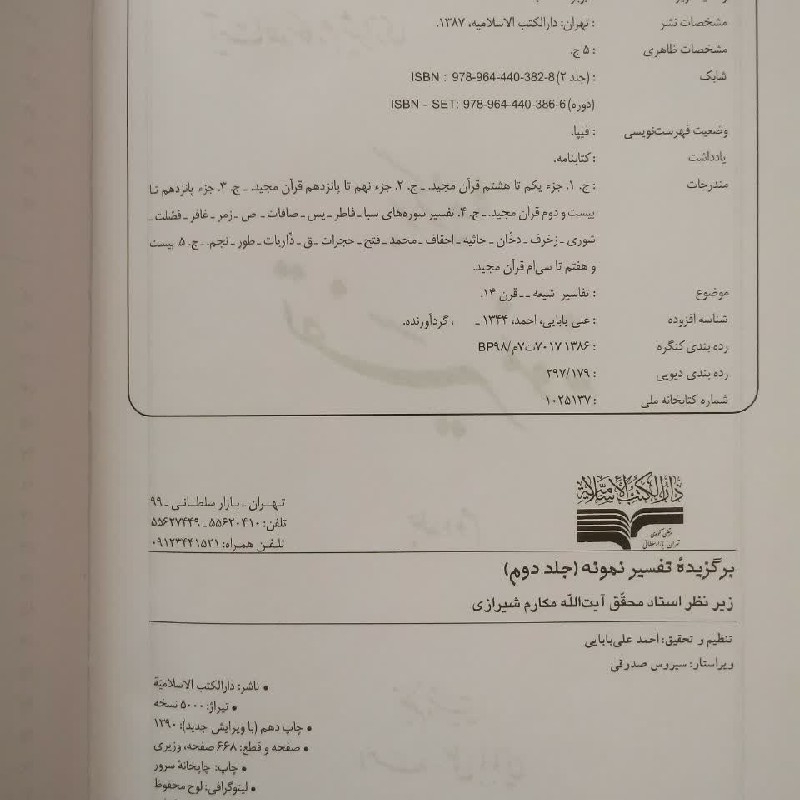 مشخصات نشر : تهران: دارالکتب الاسلامیه، ۱۳۸۷.
مشخصات ظاهری : ۵ ج.
شابک : (جلد ۲) ISBN : 978-964-440-382-8
(دوره) ISBN - SET: 978-964-440-386-6
وضعیت فهرست‌نویسی : فیپا.
یادداشت : کتابنامه.
مندرجات : ج. ۱. جزء یکم تا هشتم قرآن مجید. ـ ج. ۲. جزء نهم تا پانزدهم قرآن مجید. ـ ج. ۳. جزء پانزدهم تا
بیست و دوم قرآن مجید. ـ ج. ۴. تفسیر سوره‌های سبا ـ فاطر ـ یس ـ صافات ـ ص ـ زمر ـ غافر ـ فصلت ـ
شوری ـ زخرف ـ دخان ـ جاثیه ـ احقاف ـ محمد ـ فتح ـ حجرات ـ ق ـ ذاریات ـ طور ـ نجم. ـ ج. ۵. بیست
و هفتم تا سی‌ام قرآن مجید.
موضوع : تفاسیر شیعه ـ ـ قرن ۱۴.
شناسه افزوده : علی بابایی، احمد، ۱۳۴۴ ـ ، گردآورنده.
رده بندی کنگره : ۱۳۸۶ ۷۰۱۷ت۷م/BP۹۸
رده بندی دیویی : ۲۹۷/۱۷۹
شماره کتابخانه ملی : ۱۰۲۵۱۳۷
دارالکتب الاسلامیة
تهران ـ بازار سلطانی ـ ۹۹
تلفن: ۵۵۶۲۰۴۱۰ ـ ۵۵۶۲۷۴۴۹
تلفن همراه: ۰۹۱۲۳۴۴۱۵۳۱
برگزیدهٔ تفسیر نمونه (جلد دوم)
زیر نظر استاد محقّق آیت‌اللّه مکارم شیرازی
تنظیم و تحقیق: احمد علی‌بابایی
ویراستار: سیروس صدوقی
• ناشر: دارالکتب الاسلامیّة
• تیراژ: ۵۰۰۰ نسخه
• چاپ دهم (با ویرایش جدید): ۱۳۹۰
• صفحه و قطع: ۶۶۸ صفحه، وزیری
• چاپ: چاپخانهٔ سرور
• لیتوگرافی: لوح محفوظ